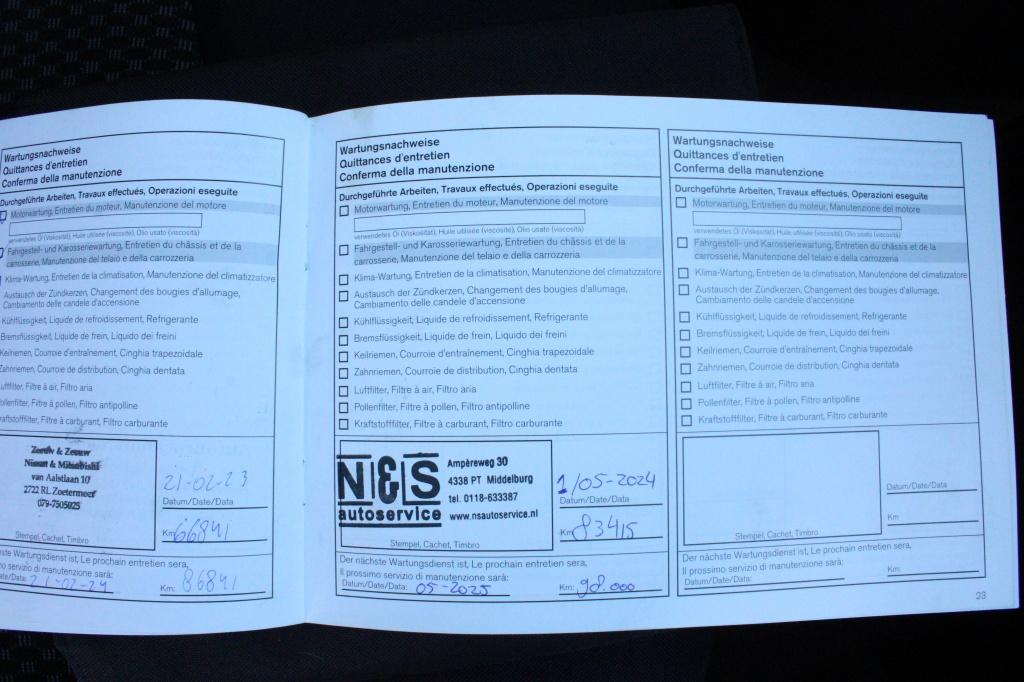 Wartungsnachweise
Quittances d'entretien
Conferma della manutenzione
Durchgeführte Arbeiten, Travaux effectués, Operazioni eseguite
Motorwartung, Entretien du moteur, Manutenzione del motore
verwendetes Öl (Viskosität), Huile utilisée (viscosité), Olio usato (viscosità)
Fahrgestell- und Karosseriewartung, Entretien du châssis et de la
carrosserie, Manutenzione del telaio e della carrozzeria
Klima-Wartung, Entretien de la climatisation, Manutenzione del climatizzatore
Austausch der Zündkerzen, Changement des bougies d'allumage,
Cambiamento delle candele d'accensione
Kühlflüssigkeit, Liquide de refroidissement, Refrigerante
Bremsflüssigkeit, Liquide de frein, Liquido dei freini
Keilriemen, Courroie d'entraînement, Cinghia trapezoidale
Zahnriemen, Courroie de distribution, Cinghia dentata
Luftfilter, Filtre à air, Filtro aria
ollenfilter, Filtre à pollen, Filtro antipolline
raftstofffilter, Filtre à carburant, Filtro carburante
Zeeuw & Zeeuw
Nissan & Mitsubishi
van Aalstlaan 10
2722 RL Zoetermeer
079-7505025
Stempel, Cachet, Timbro
21-02-23
Datum/Date/Data
Km 66841
hste Wartungsdienst ist, Le prochain entretien sera,
mo servizio di manutenzione sarà:
ate/Data: 21-02-24 Km: 86841
Wartungsnachweise
Quittances d'entretien
Conferma della manutenzione
Durchgeführte Arbeiten, Travaux effectués, Operazioni eseguite
Motorwartung, Entretien du moteur, Manutenzione del motore
verwendetes Öl (Viskosität), Huile utilisée (viscosité), Olio usato (viscosità)
Fahrgestell- und Karosseriewartung, Entretien du châssis et de la
carrosserie, Manutenzione del telaio e della carrozzeria
Klima-Wartung, Entretien de la climatisation, Manutenzione del climatizzatore
Austausch der Zündkerzen, Changement des bougies d'allumage,
Cambiamento delle candele d'accensione
Kühlflüssigkeit, Liquide de refroidissement, Refrigerante
Bremsflüssigkeit, Liquide de frein, Liquido dei freini
Keilriemen, Courroie d'entraînement, Cinghia trapezoidale
Zahnriemen, Courroie de distribution, Cinghia dentata
Luftfilter, Filtre à air, Filtro aria
Pollenfilter, Filtre à pollen, Filtro antipolline
Kraftstofffilter, Filtre à carburant, Filtro carburante
N&S
autoservice
Ampèreweg 30
4338 PT Middelburg
tel. 0118-633387
www.nsautoservice.nl
Stempel, Cachet, Timbro
1/05-2024
Datum/Date/Data
Km 83415
Der nächste Wartungsdienst ist, Le prochain entretien sera,
Il prossimo servizio di manutenzione sarà:
Datum/Date/Data: 05-2025 Km: 98.000
Wartungsnachweise
Quittances d'entretien
Conferma della manutenzione
Durchgeführte Arbeiten, Travaux effectués, Operazioni eseguite
Motorwartung, Entretien du moteur, Manutenzione del motore
verwendetes Öl (Viskosität), Huile utilisée (viscosité), Olio usato (viscosità)
Fahrgestell- und Karosseriewartung, Entretien du châssis et de la
carrosserie, Manutenzione del telaio e della carrozzeria
Klima-Wartung, Entretien de la climatisation, Manutenzione del climatizzatore
Austausch der Zündkerzen, Changement des bougies d'allumage,
Cambiamento delle candele d'accensione
Kühlflüssigkeit, Liquide de refroidissement, Refrigerante
Bremsflüssigkeit, Liquide de frein, Liquido dei freini
Keilriemen, Courroie d'entraînement, Cinghia trapezoidale
Zahnriemen, Courroie de distribution, Cinghia dentata
Luftfilter, Filtre à air, Filtro aria
Pollenfilter, Filtre à pollen, Filtro antipolline
Kraftstofffilter, Filtre à carburant, Filtro carburante
Stempel, Cachet, Timbro
Datum/Date/Data
Km
Der nächste Wartungsdienst ist, Le prochain entretien sera,
Il prossimo servizio di manutenzione sarà:
Datum/Date/Data: Km:
23